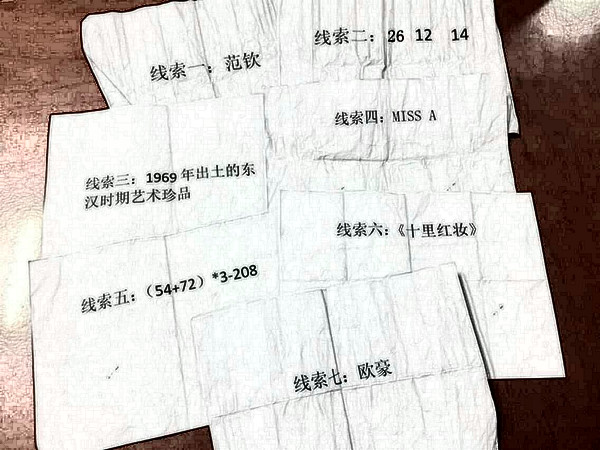 线索一：范钦
线索二：26 12 14
线索三：1969 年出土的东
汉时期艺术珍品
线索四：MISS A
线索五：（54+72）*3-208
线索六：《十里红妆》
线索七：欧豪